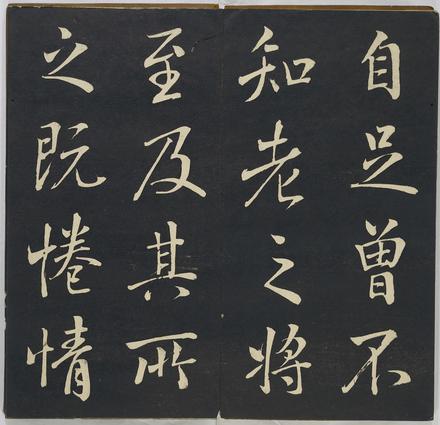 自足曾不
知老之將
至及其所
之既惓情